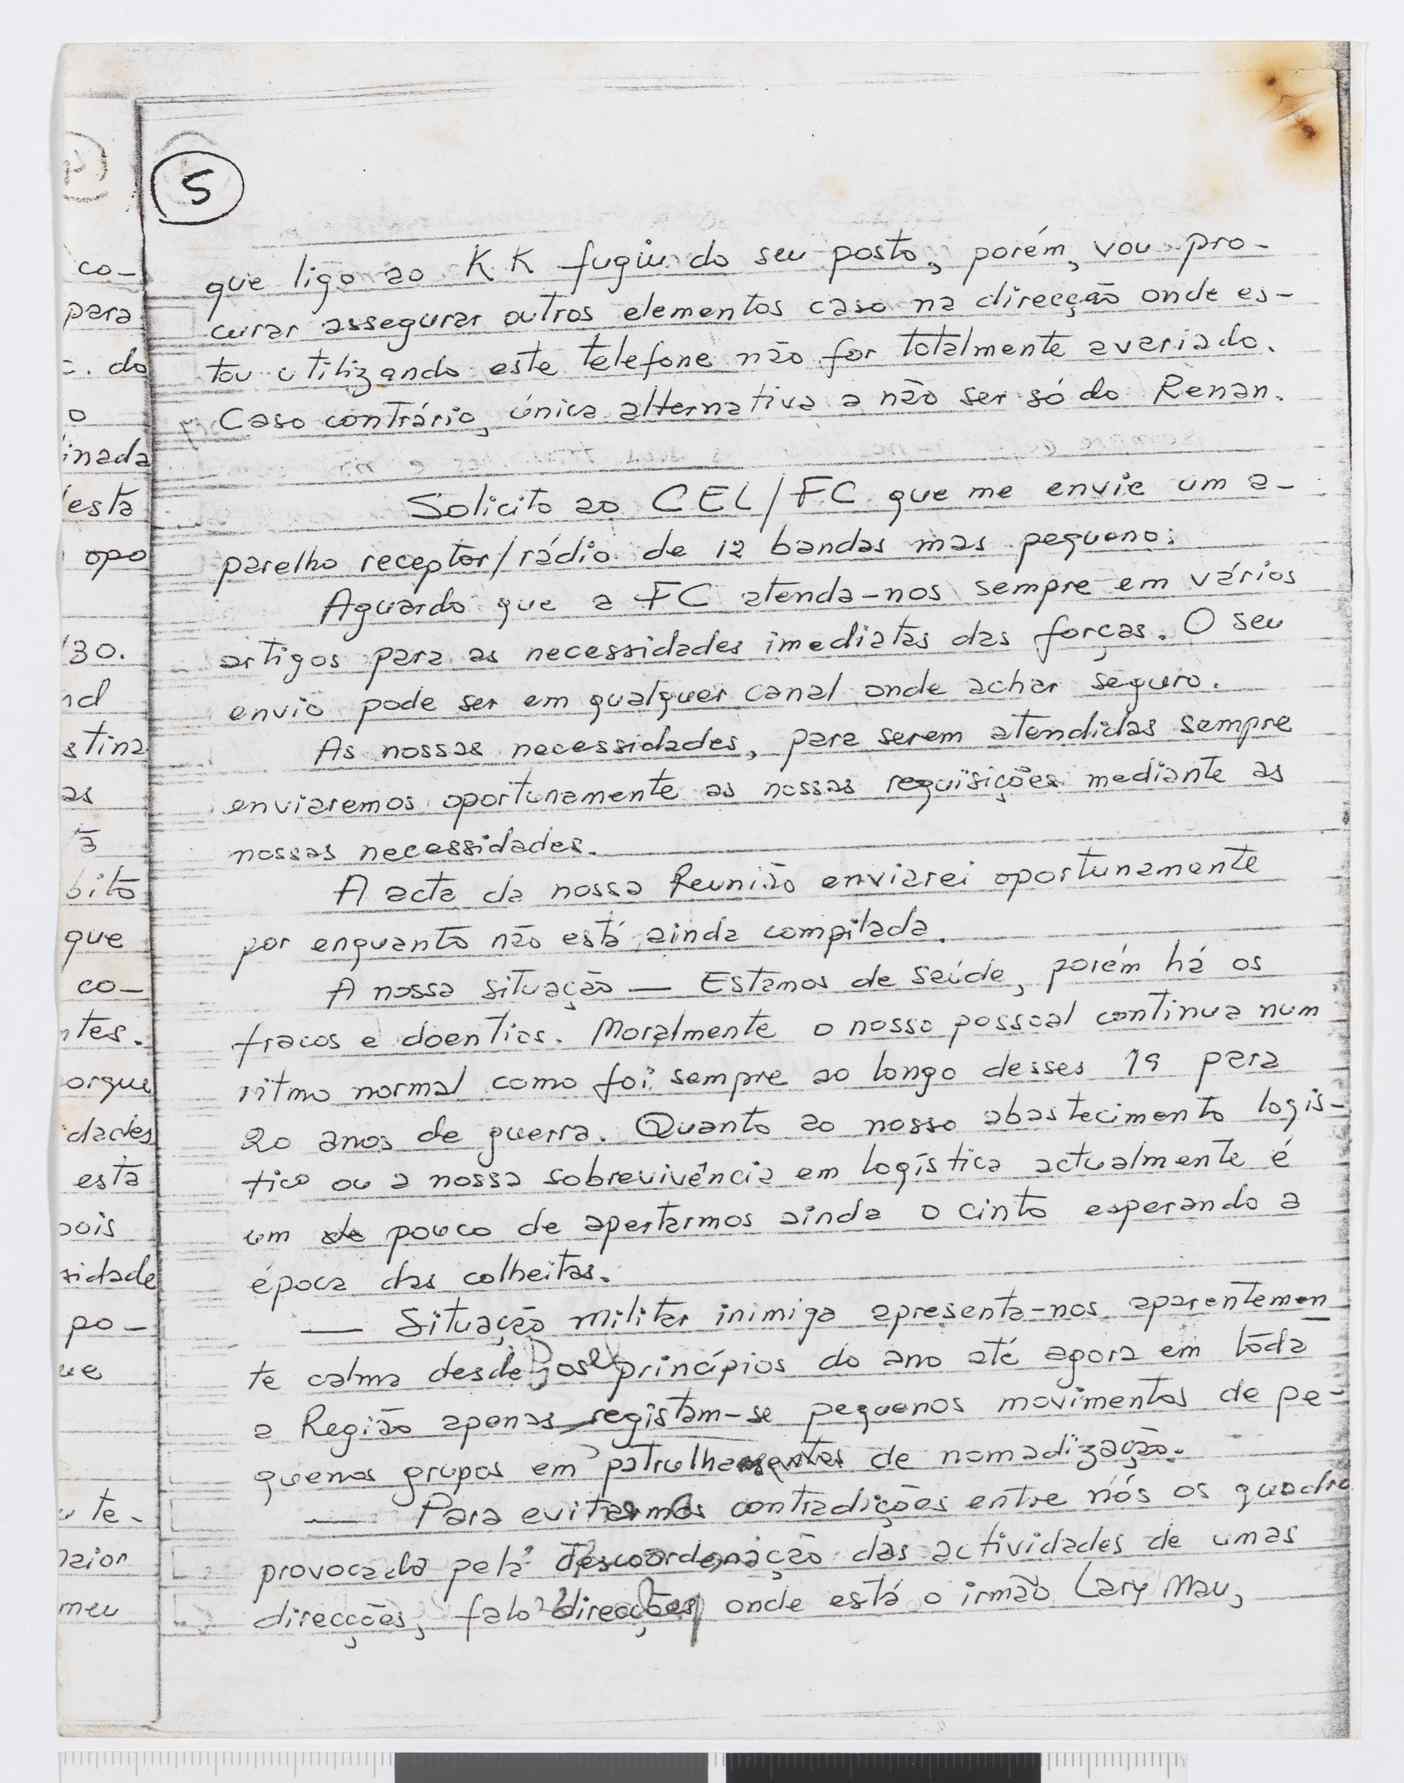 5
que ligo ao KK fugiu do seu posto, porém, vou pro-
curar assegurar outros elementos caso na direcção onde es-
tou utilizando este telefone não for totalmente averiado.
Caso contrário, única alternativa a não ser só do Renan.
Solicito ao CEL/FC que me envie um a-
parelho receptor/rádio de 12 bandas mas pequeno;
Aguardo que a FC atenda-nos sempre em vários
artigos para as necessidades imediatas das forças. O seu
envio pode ser em qualquer canal onde achar seguro.
As nossas necessidades, para serem atendidas sempre
enviaremos oportunamente as nossas requisições mediante as
nossas necessidades.
A acta da nossa Reunião enviarei oportunamente
por enquanto não está ainda compilada.
A nossa situação — Estamos de saúde, porém há os
fracos e doentios. Moralmente o nosso possoal continua num
ritmo normal como foi sempre ao longo desses 19 para
20 anos de guerra. Quanto ao nosso abastecimento logis-
tico ou a nossa sobrevivência em logística actualmente é
um de pouco de apertarmos ainda o cinto esperando a
época das colheitas.
— Situação militar inimiga apresenta-nos aparentemen
te calma desde os princípios do ano até agora em tôda
a Região apenas registam-se pequenos movimentos de pe-
quenos grupos em patrulhamentos de nomadização.
— Para evitarmos contradições entre nós os quadro
provocada pela descoordenação das actividades de umas
direcções, falo direcções onde está o irmão Lary Mau,
co-
para
. do
o
inada
esta
opo
30.
nd
stina
as
bito
que
co-
ntes.
orque
dades
esta
pois
sidade
po-
ue
te-
maior
meu